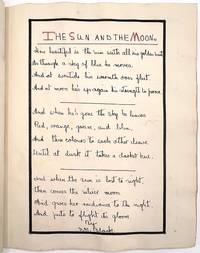 THE SUN AND THE MOON.
How beautiful is the sun with all his golden
As through a sky of blue he moves.
And at his warmth over
And at noon he's up again his strength to prove
And when he's gone the sky he leaves
Red, orange, green, and blue.
And the colours to each other cleave
Until at dusk it takes a darker hue.
And when the sun is lost to sight,
Then comes the silver moon
And gives her radiance to the night,
And puts to flight its gloom.
By